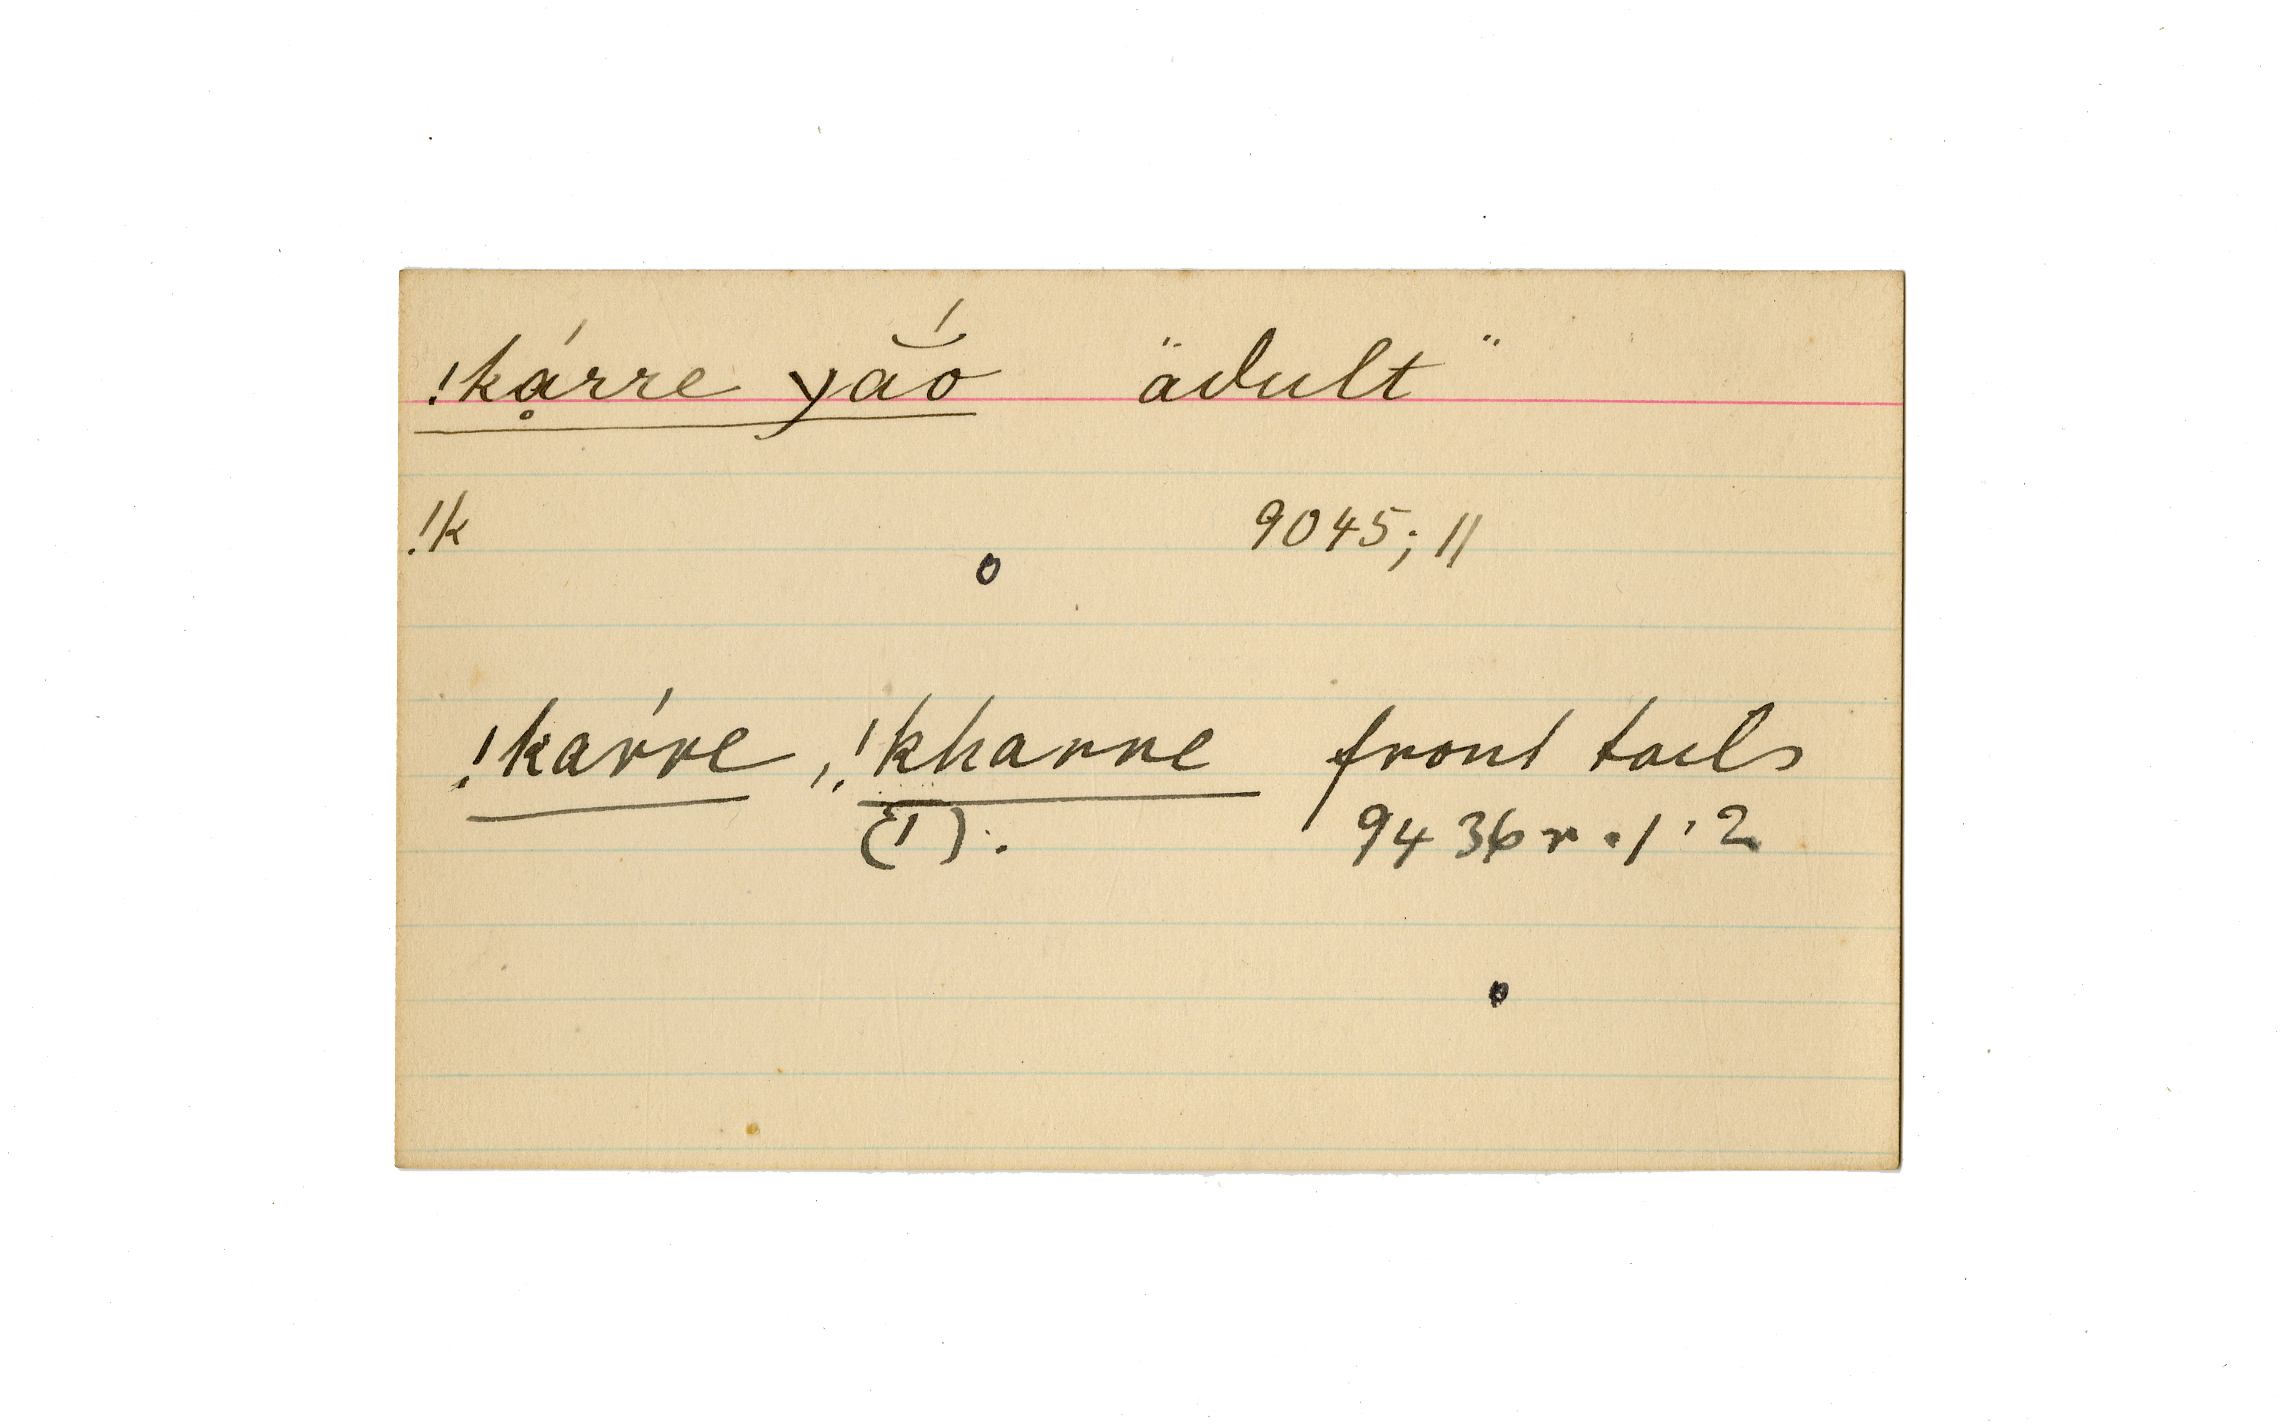 !kạ́rre yắo "adult"
!k 9045; 11
!kárre, !kharre front tails
(!). 9436 r. 1, 2